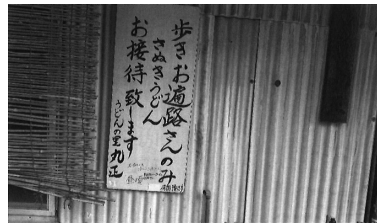 歩きお遍路さんのみ
さぬきうどん
お接待致します
うどんの里丸正